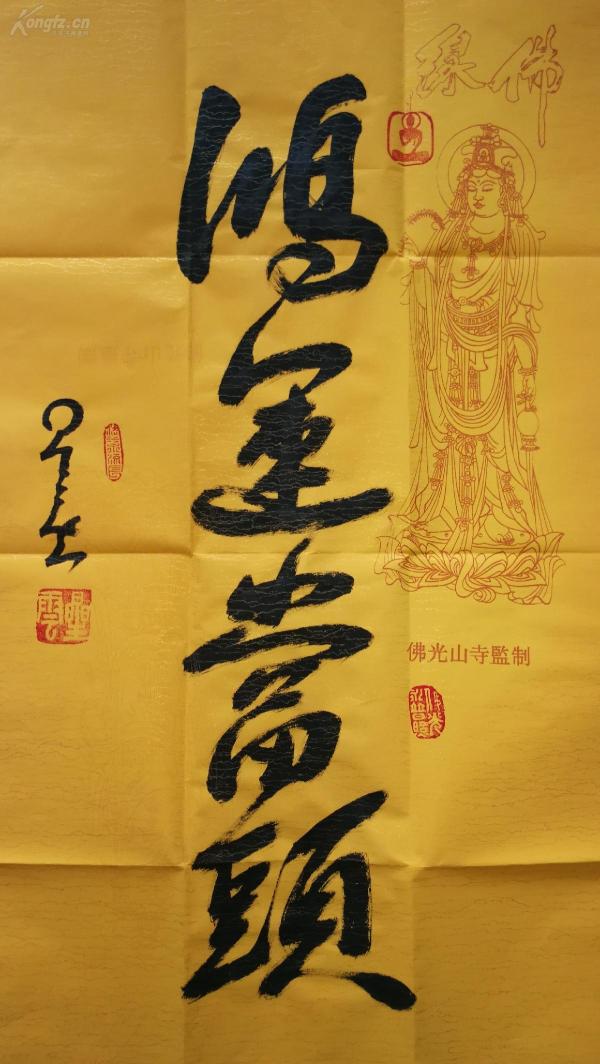 佛緣
佛光山寺監制
鴻運當頭
星雲
星雲
Kongfz.cn